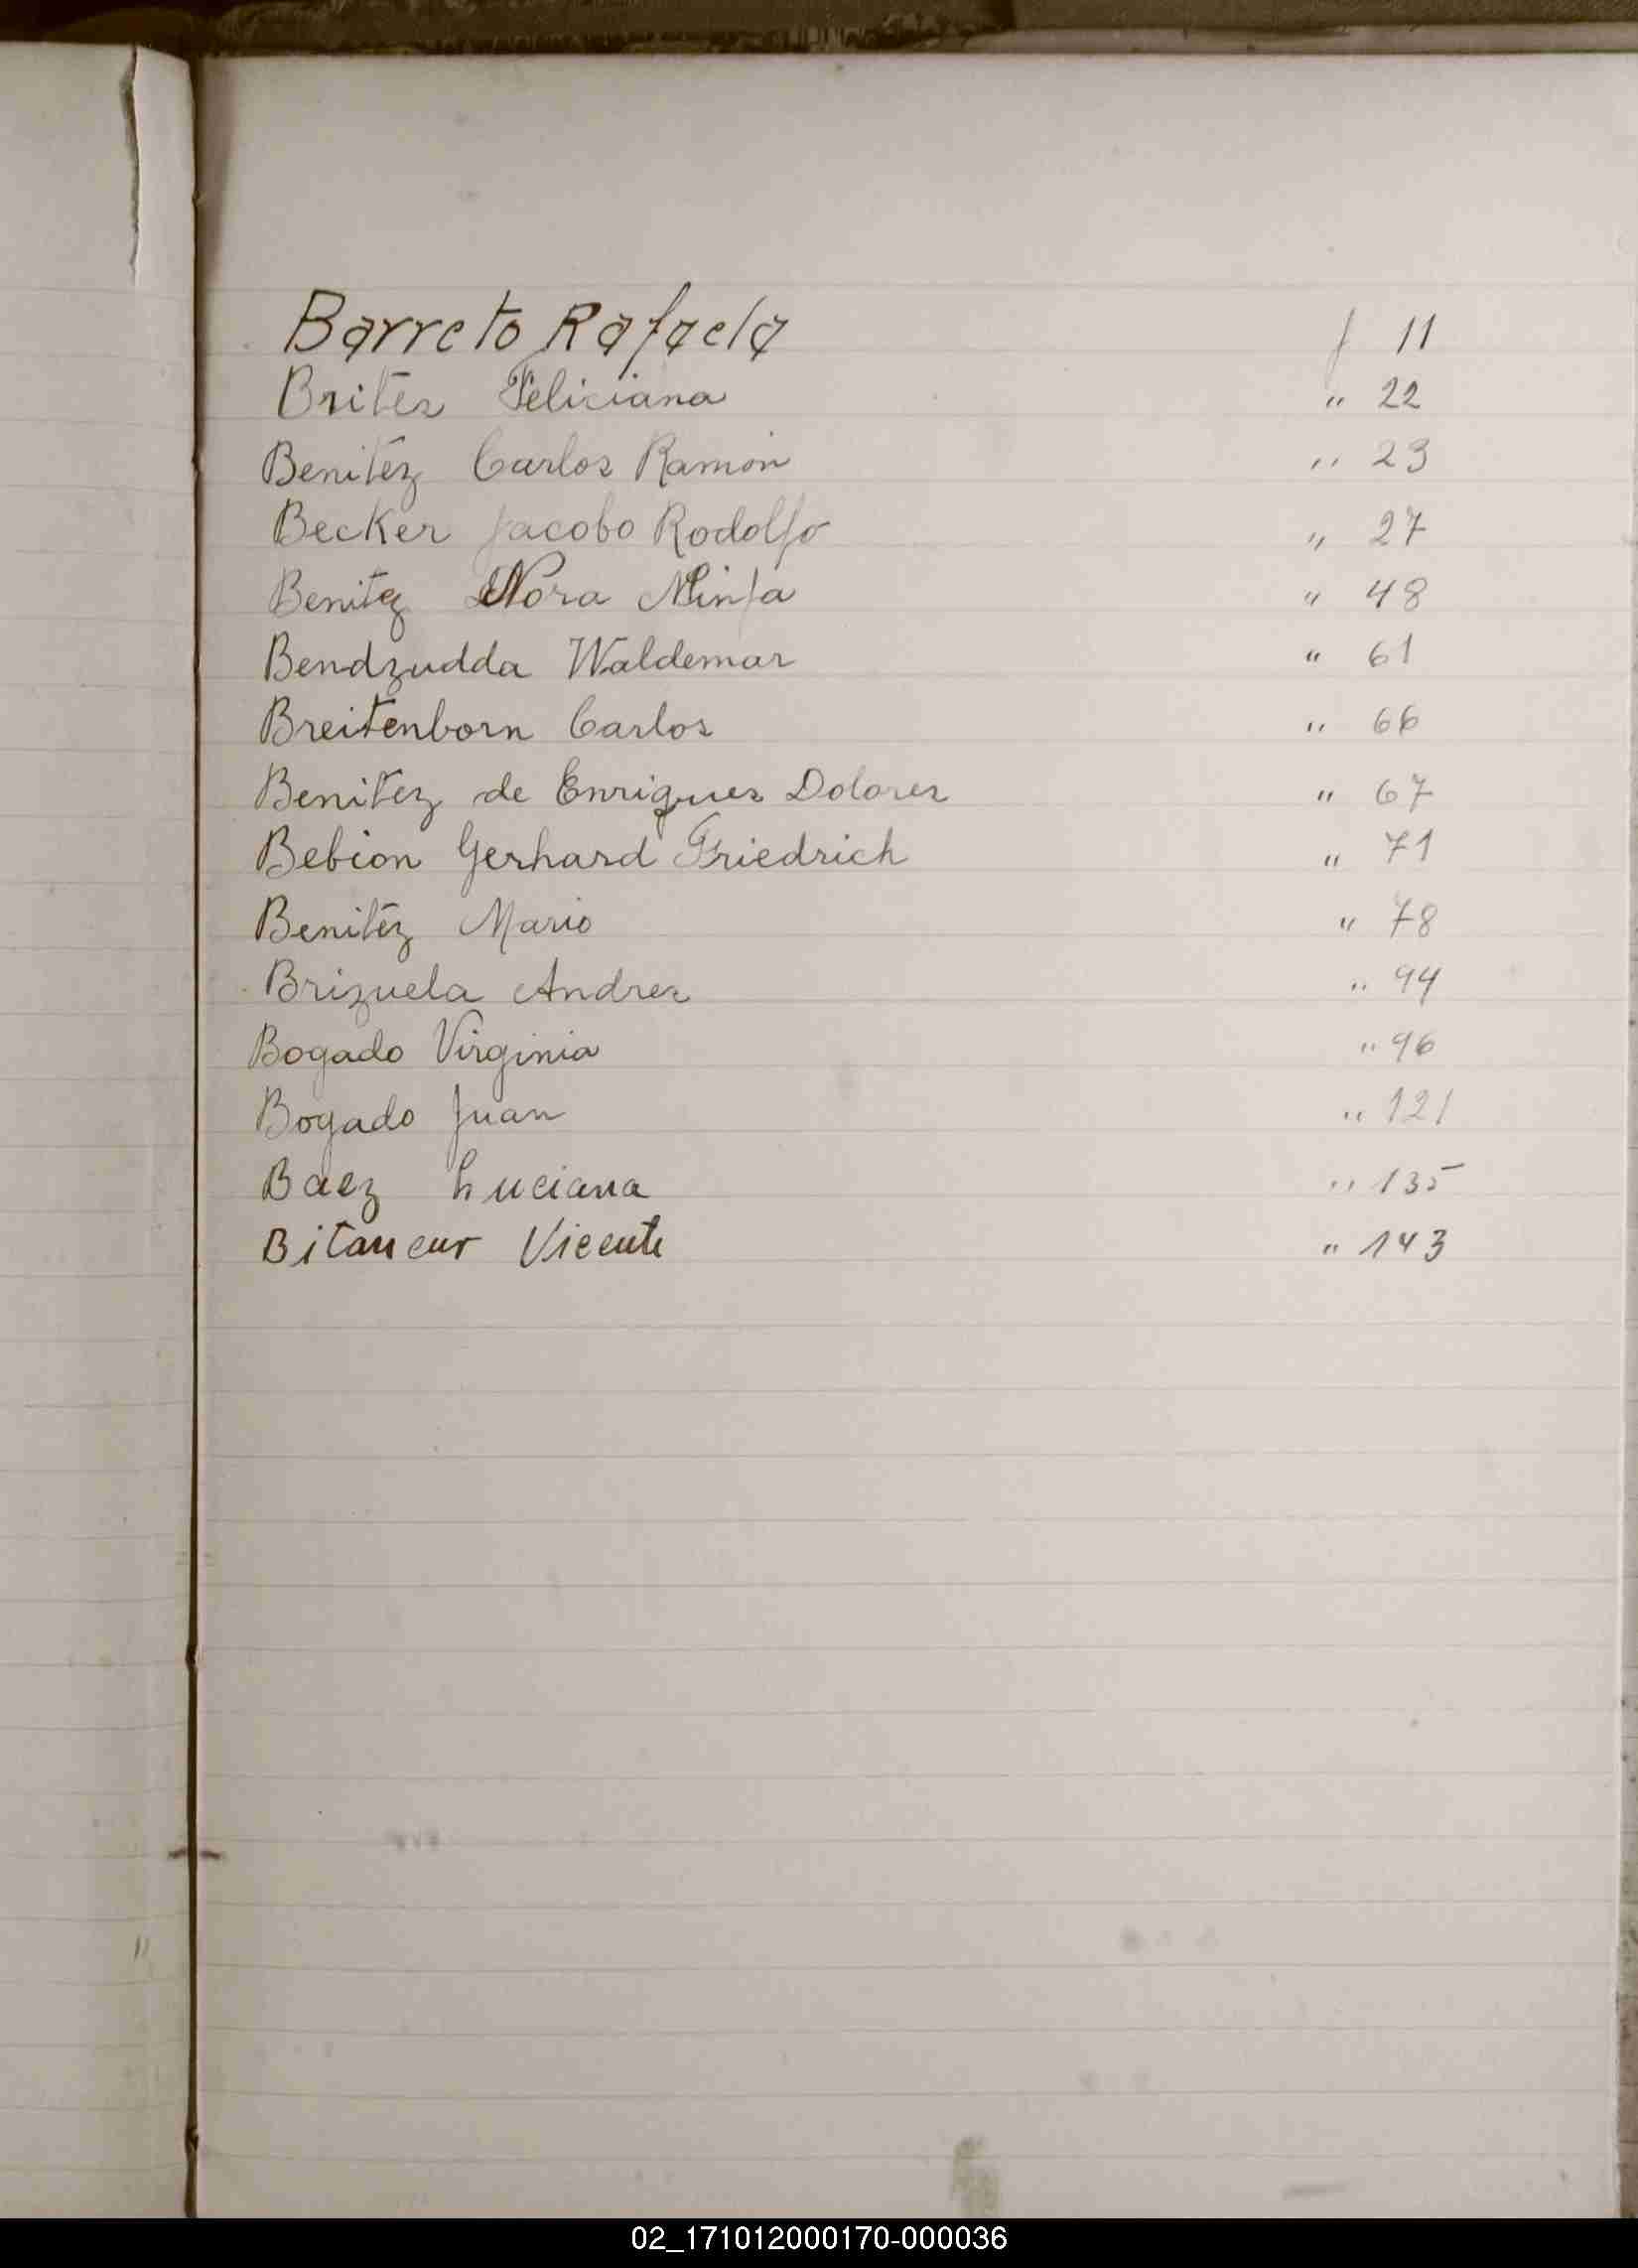 Barreto Rafaela f 11
Brites Feliciana " 22
Benitéz Carlos Ramón " 23
Becker Jacobo Rodolfo " 27
Benitez Nora Ninfa " 48
Bendzudda Waldemar " 61
Breitenborn Carlos " 66
Benitez de Enriques Dolores " 67
Bebion Gerhard Friedrich " 71
Benitéz Mario " 78
Brizuela Andres " 94
Bogado Virginia " 96
Bogado Juan " 121
Baez Luciana " 135
Bitancur Vicente " 143
02_171012000170-000036